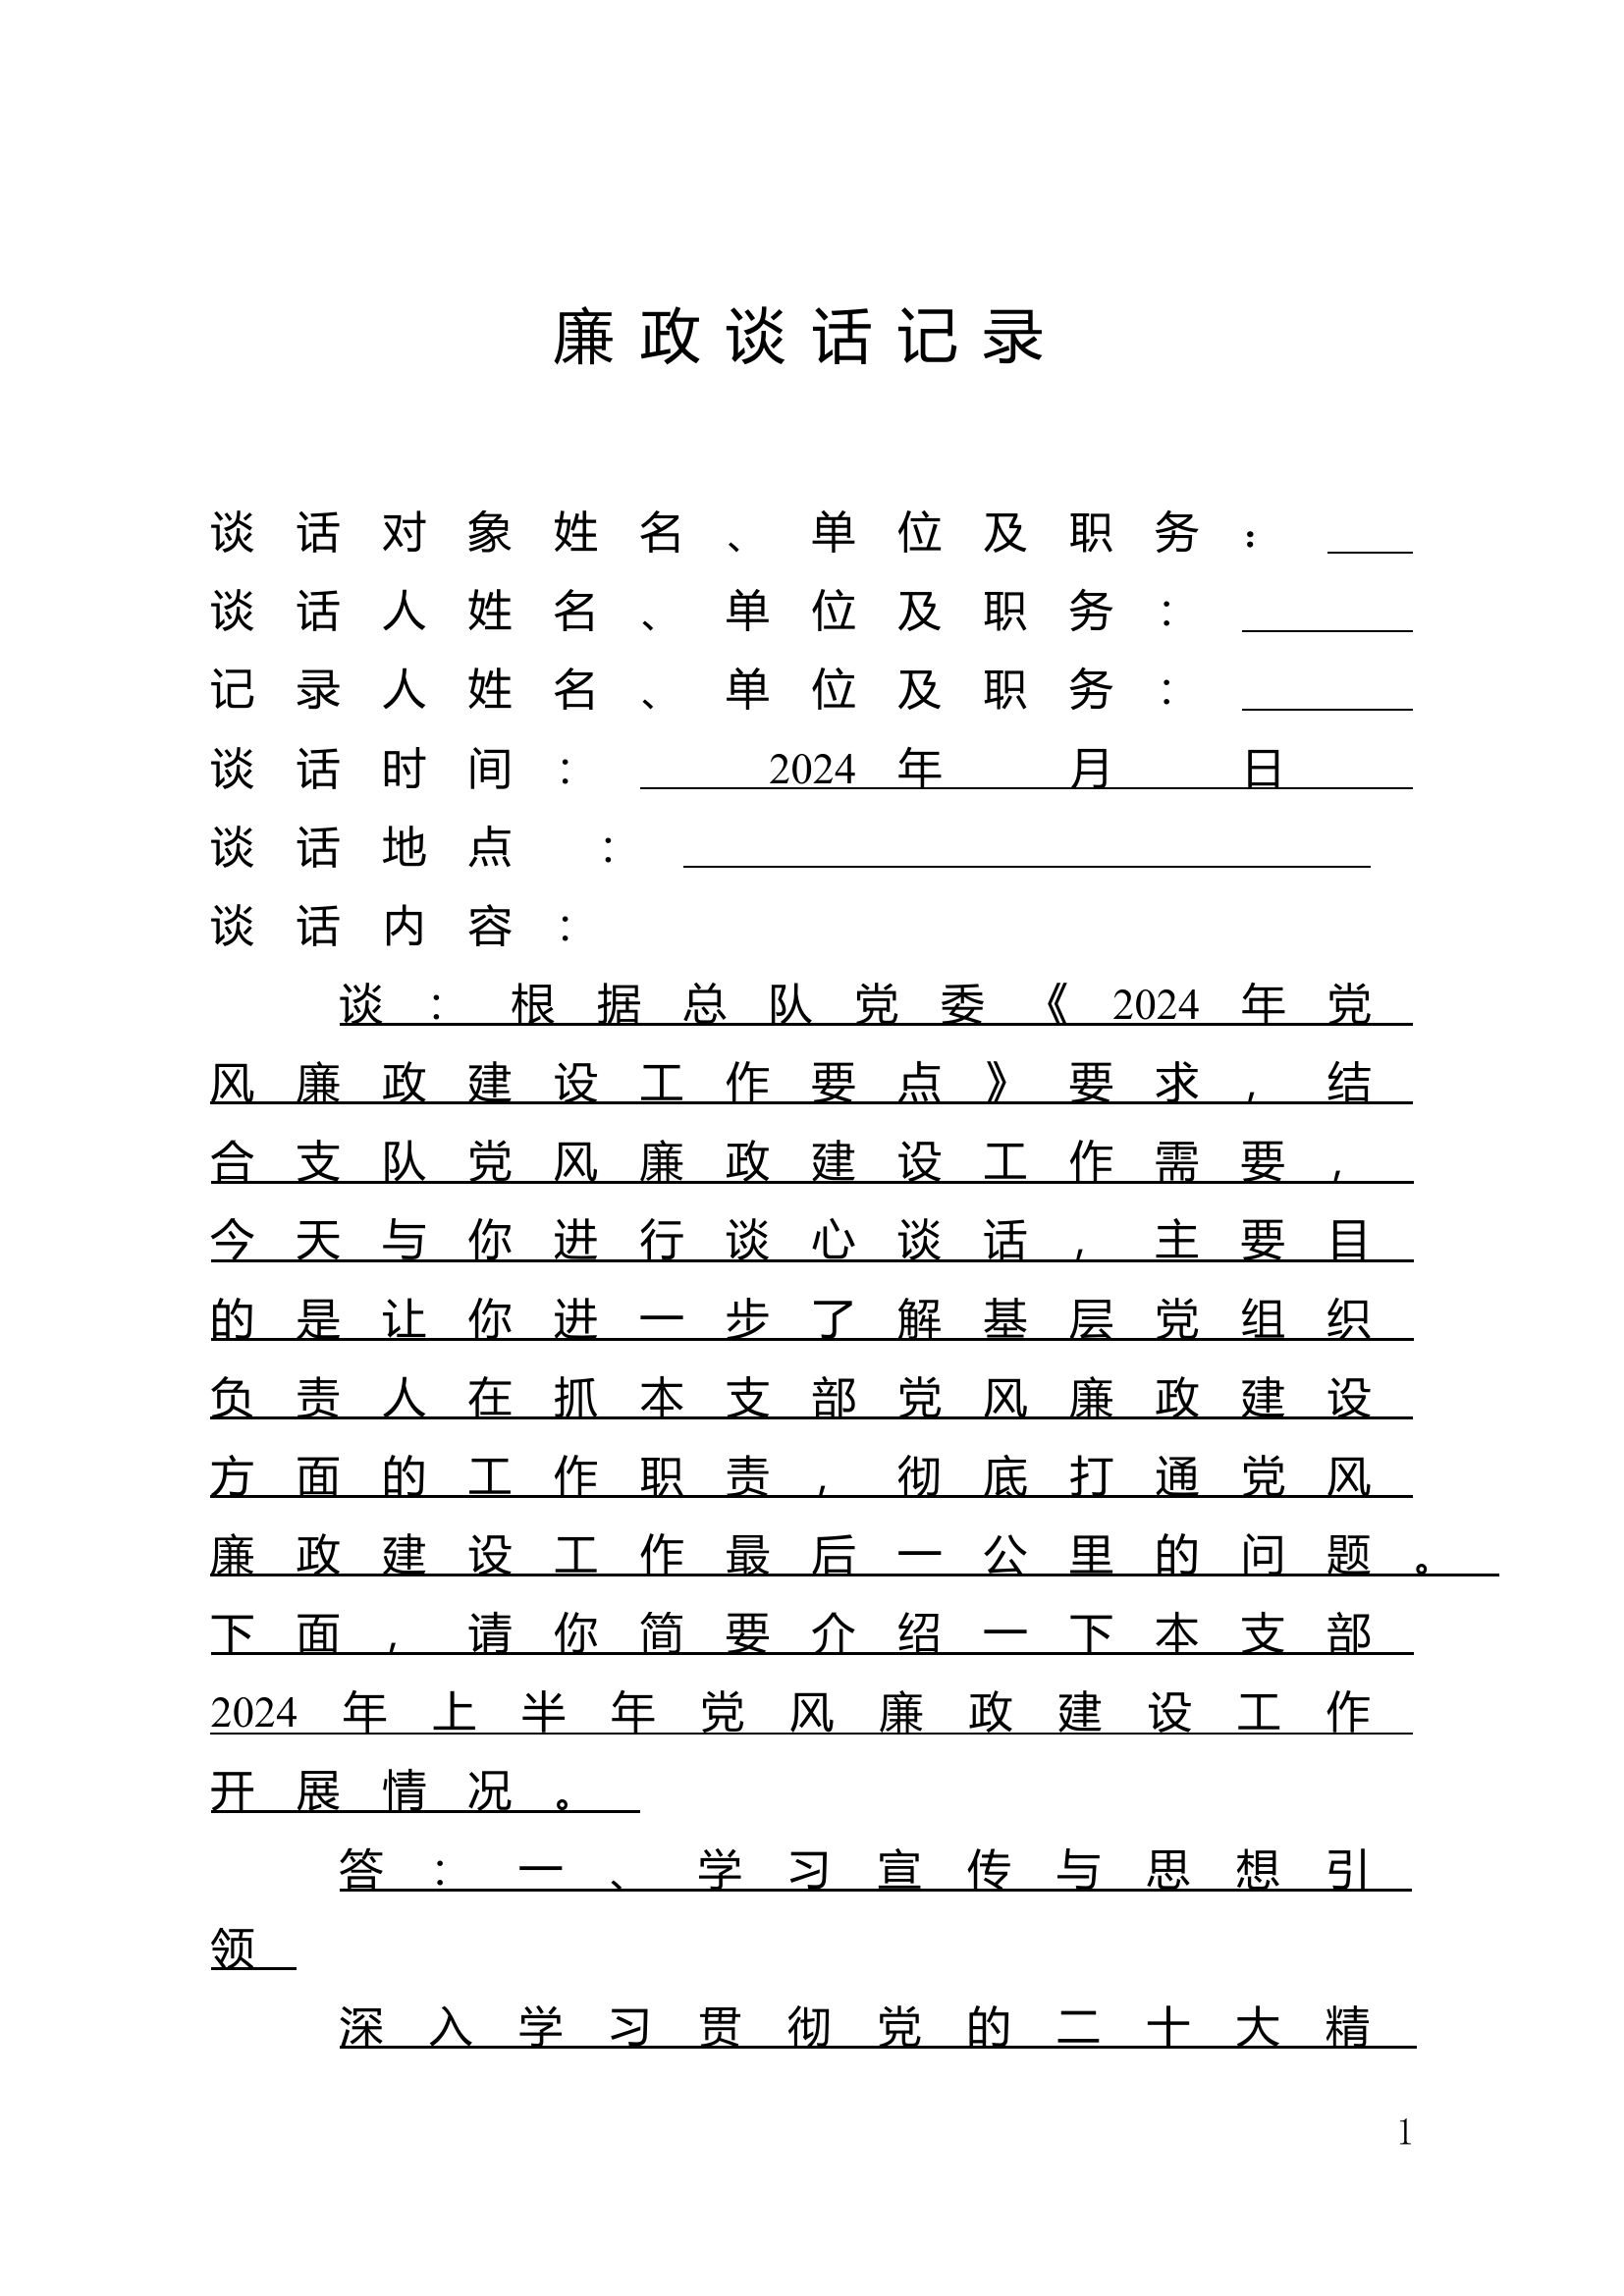 廉政谈话记录
谈话对象姓名、单位及职务：
谈话人姓名、单位及职务：
记录人姓名、单位及职务：
谈话时间： 2024年 月 日
谈话地点 ：
谈话内容：
谈：根据总队党委《2024年党
风廉政建设工作要点》要求，结
合支队党风廉政建设工作需要，
今天与你进行谈心谈话，主要目
的是让你进一步了解基层党组织
负责人在抓本支部党风廉政建设
方面的工作职责，彻底打通党风
廉政建设工作最后一公里的问题。
下面，请你简要介绍一下本支部
2024年上半年党风廉政建设工作
开展情况。
答：一、学习宣传与思想引
领
深入学习贯彻党的二十大精
1